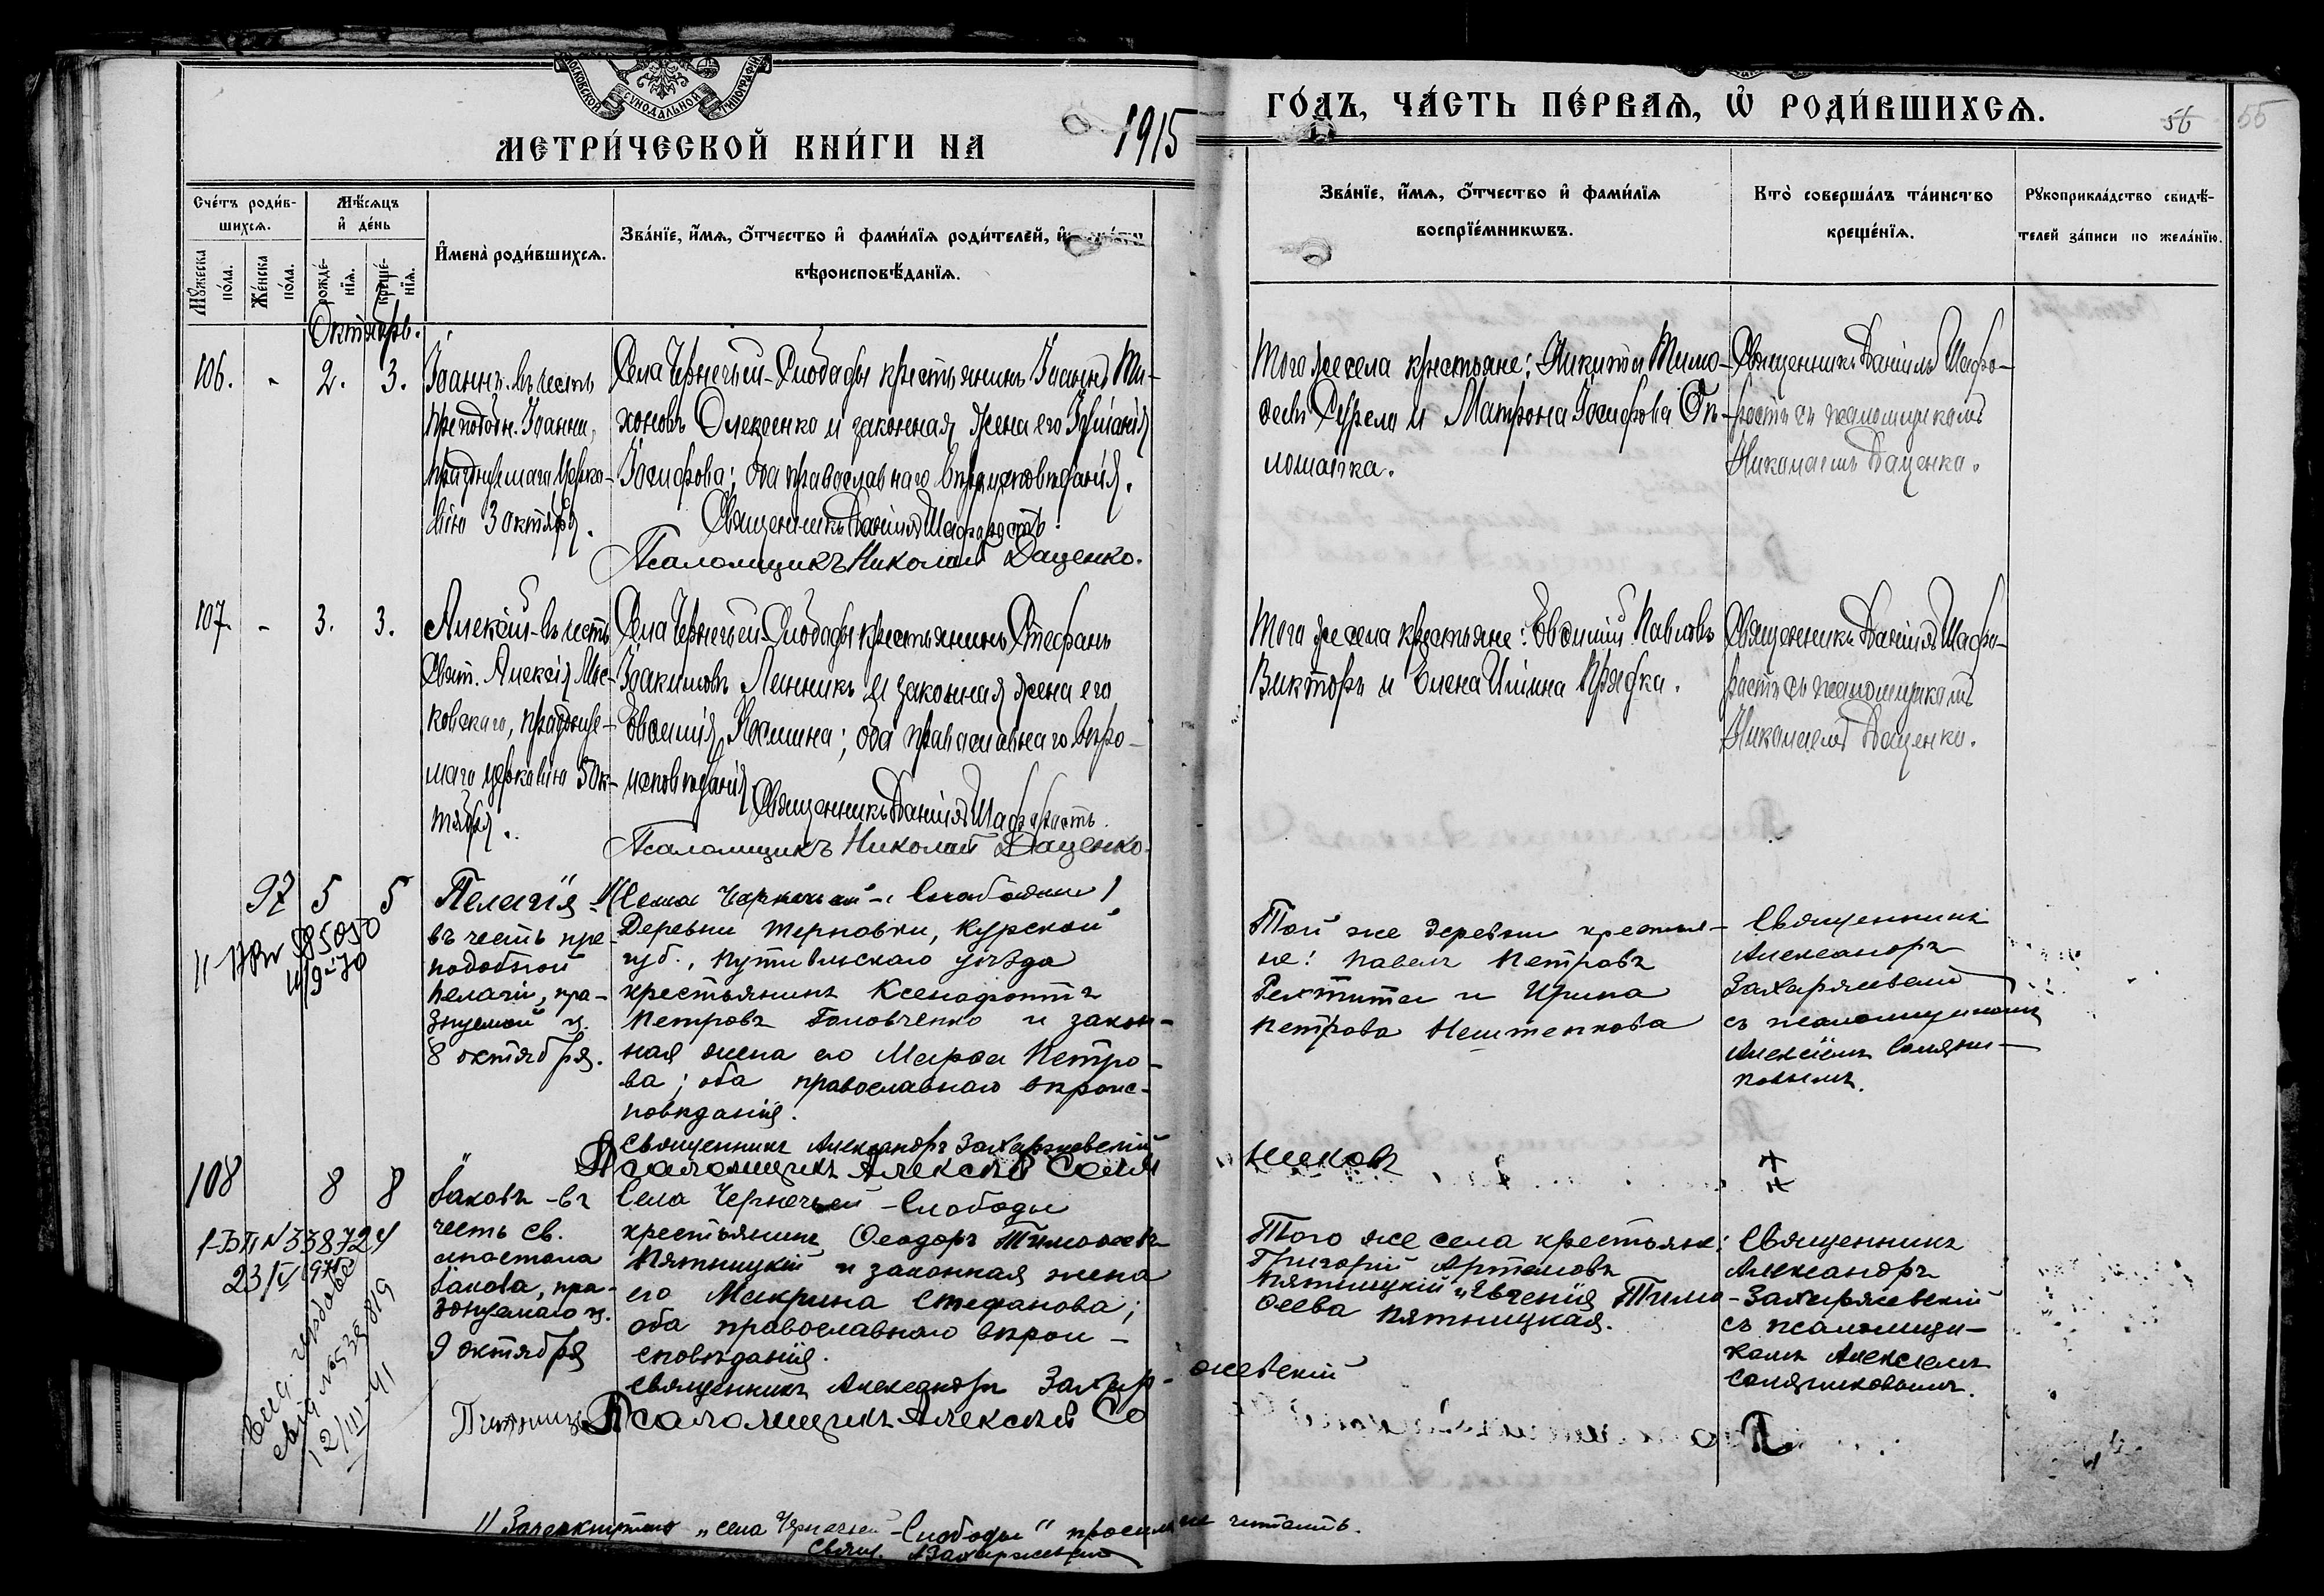 МОСКОВСКОЙ СУНОДАЛЬНОЙ ТИПОГРАФІИ
МЕТРИ́ЧЕСКОЙ КНИ́ГИ НА 1915
ГО́ДЪ, ЧА́СТЬ ПЕ́РВАѦ, Ѡ҆ РОДИ́ВШИХСѦ.
56 55
Сче́тъ роди́в-
шихсѧ.
Мѣ́сѧцъ
и҆ де́нь
И҆мена̀ роди́вшихсѧ.
Зва́нїе, и҆́мѧ, ѻ҆́тчество и҆ фами́лїѧ роди́телей, и҆
вѣроисповѣ́данїѧ.
Мꙋ́жеска
по́ла.
Же́нска
по́ла.
рожде́-
нїѧ.
креще́-
нїѧ.
Зва́нїе, и҆́мѧ, ѻ҆́тчество и҆ фами́лїѧ
воспрїе́мникѡвъ.
Кто̀ соверша́лъ та́инство
креще́нїѧ.
Рꙋкоприкла́дство свидѣ́-
телей за́писи по жела́нїю.
Октябрь.
106. - 2. 3.
Іоаннъ. въ честь
преподобн. Іоанна,
празднуемаго Церко-
вію 3 октября.
Села Чернечьей-Слободы крестьянинъ Іоаннъ Ти-
хоновъ Олексенко и законная жена его Іуліанія
Іосифова; оба православнаго вѣроисповѣданія.
Священникъ Даніилъ Шафрость
Псаломщикъ Николай Даценко.
Того же села крестьяне: Никита Тимо-
веевъ и Матрона Іосифова Оп-
лошайка.
Священникъ Даніилъ Шафро-
рость съ псаломщикомъ
Николаемъ Даценко.
107. - 3. 3.
Алексій-въ честь
Свят. Алексія Мос-
ковскаго, праздную-
маго церковію 5 Ок-
тября.
Села Чернечьей-Слободы крестьянинъ Стефанъ
Іоакимовъ Линникъ и законная жена его
Евфимія Косьмина; оба православнаго вѣро-
исповѣданія.
Священникъ Даніилъ Шафрость.
Псаломщикъ Николай Даценко.
Того же села крестьяне: Евфимій Павловъ
Викторъ и Елена Ильина Прядка.
Священникъ Даніилъ Шафро-
рость съ псаломщикомъ
Николаемъ Даценко.
97 5 5
№ 585050
Пелагія -
въ честь пре-
подобной
Пелагіи, пра-
зднуемой ц.
8 октября.
1/(Села Чернечьей - Слободы)
Деревни Терновки, Курской
губ., Путивльскаго уѣзда
крестьянинъ Ксенофонтъ
Петровъ Головченко и закон-
ная жена его Марѳа Петро-
ва; оба православнаго вѣроис-
повѣданія.
Священникъ Александръ Захаржевскій
Псаломщикъ Алексѣй Соляниковъ
Той же деревни крестья-
не: Павелъ Петровъ
и Ирина
Петрова
Священникъ
Александръ
Захаржевскій
съ псаломщикомъ
Алексіемъ Соляни-
ковымъ.
108 8 8
1-БП № 338724
23/IV 1971
12/III-41
Іаковъ - въ
честь св.
апостола
Іакова, пра-
зднуемаго ц.
9 октября
Села Чернечьей - Слободы
крестьянинъ Ѳеодоръ Тимоѳеевъ
Пятницкій и законная жена
его Макрина Стефанова;
оба православнаго вѣрои-
сповѣданія.
Священникъ Александръ Захаржевскій
Псаломщикъ Алексѣй Со
Того же села крестьяне:
Григорій Артемовъ
Пятницкій и Евгенія Тимо-
ѳеева Пятницкая.
Священникъ
Александръ
Захаржевскій
съ псаломщи-
комъ Алексіемъ
Соляниковымъ.
1/ Зачеркнутое „села Чернечьей-Слободы" просимъ не читать.
Свящ. А Захаржевскій